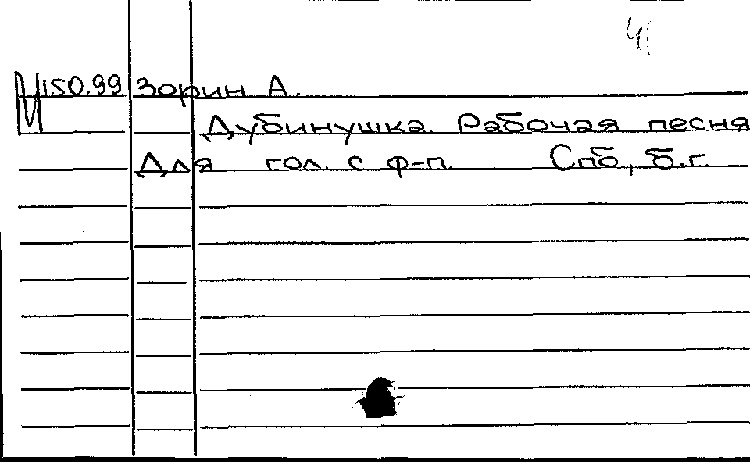 М150.99 Зорин А.
Дубинушка. Рабочая песня
Для гол. с ф-п. Спб, б.г.